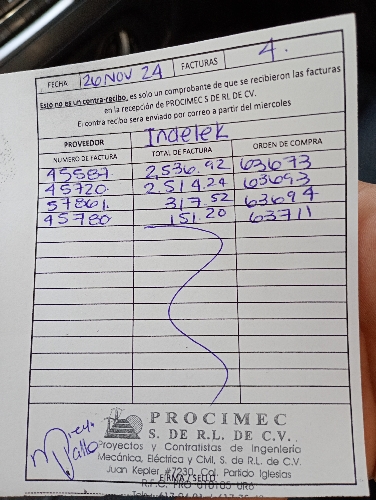 FECHA 26 NOV 24 FACTURAS 4.
Esto no es un contra-recibo, es solo un comprobante de que se recibieron las facturas
en la recepción de PROCIMEC S DE RL DE CV.
El contra recibo sera enviado por correo a partir del miercoles
PROVEEDOR Indelek
NUMERO DE FACTURA TOTAL DE FACTURA ORDEN DE COMPRA
45587 2,536.92 63673
45720 2,514.24 63693
57861 317.52 63694
45780 151.20 63711
PROCIMEC
S. DE R.L. DE C.V.
Proyectos y Contratistas de Ingeniería
Mecánica, Eléctrica y Civil, S. de R.L. de C.V.
Juan Kepler #7230, Col. Partido Iglesias
FIRMA/SELLO